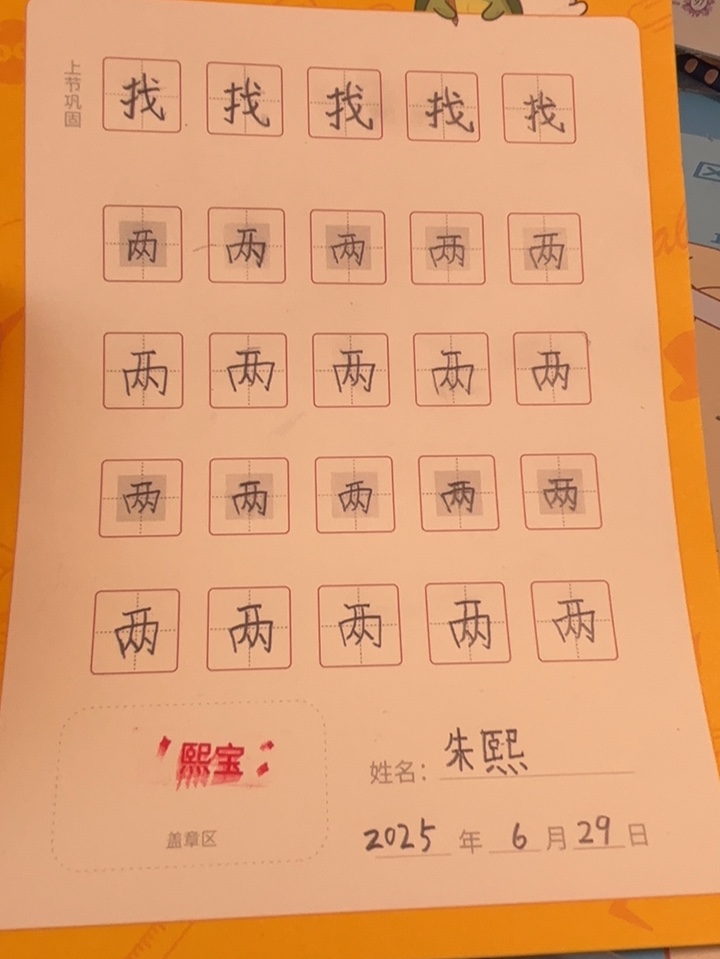 上节巩固
找 找 找 找 找
两 两 两 两 两
两 两 两 两 两
两 两 两 两 两
两 两 两 两 两
熙宝
盖章区
姓名：朱熙
2025 年 6 月 29 日